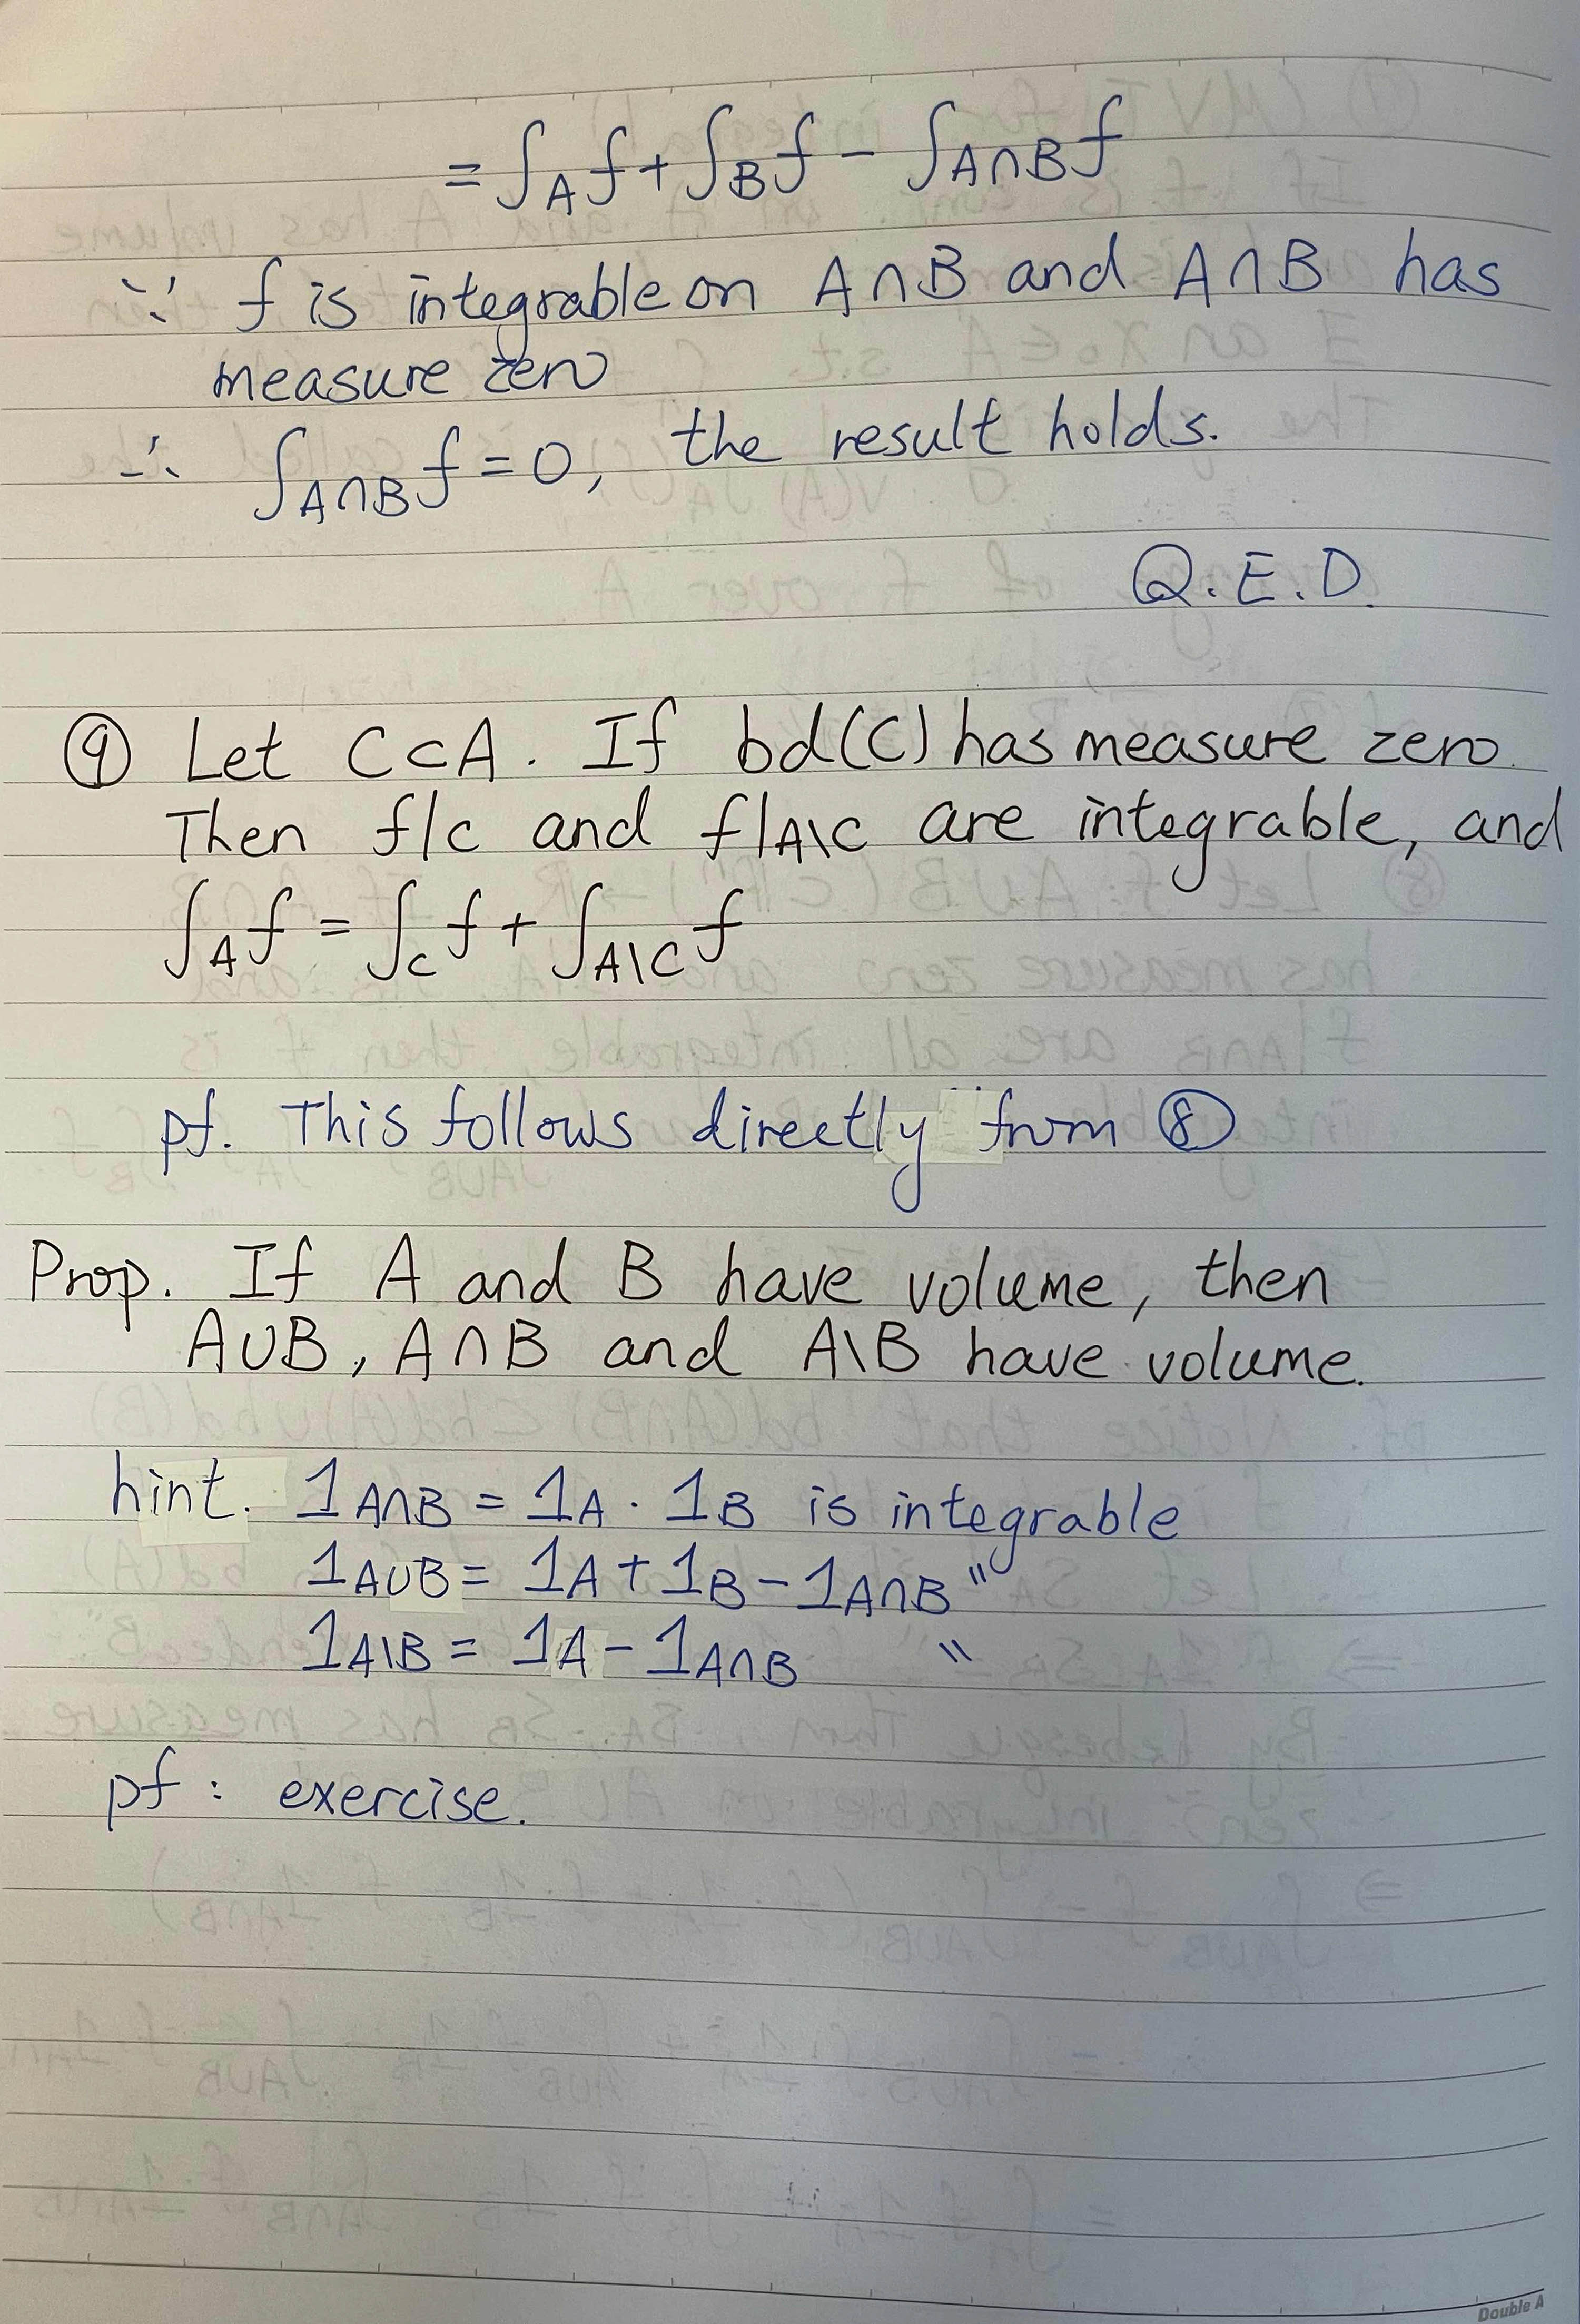 = ∫_A f + ∫_B f - ∫_{A∩B} f
∵ f is integrable on A∩B and A∩B has
measure zero
∴ ∫_{A∩B} f = 0, the result holds.
Q.E.D.
⑨ Let C⊂A. If bd(C) has measure zero.
Then f|_C and f|_{A\C} are integrable, and
∫_A f = ∫_C f + ∫_{A\C} f
pf. This follows directly from ⑧
Prop. If A and B have volume, then
A∪B, A∩B and A\B have volume.
hint. 1_{A∩B} = 1_A · 1_B is integrable
1_{A∪B} = 1_A + 1_B - 1_{A∩B} "
1_{A\B} = 1_A - 1_{A∩B} "
pf : exercise.
Double A